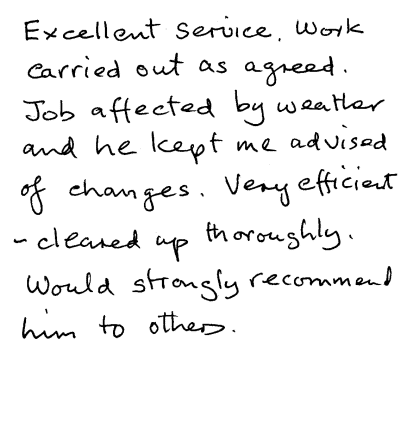 Excellent service. Work
carried out as agreed.
Job affected by weather
and he kept me advised
of changes. Very efficient
- cleared up thoroughly.
Would strongly recommend
him to others.